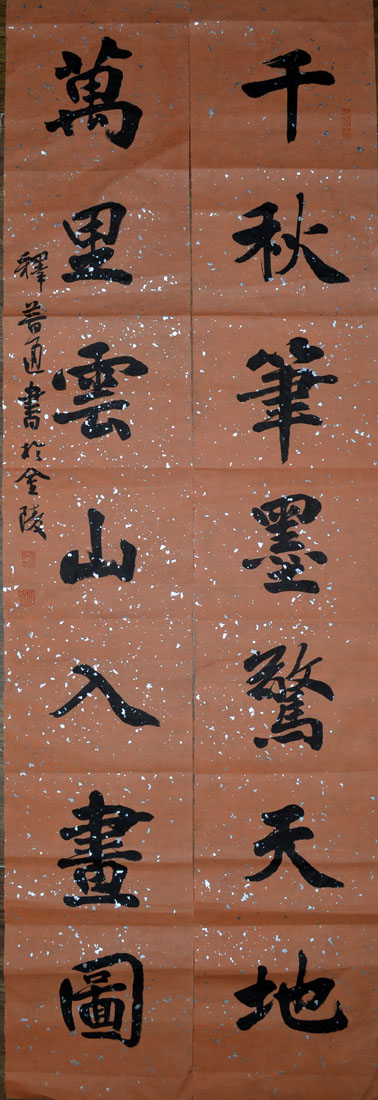 千秋筆墨驚天地
萬里雲山入畫圖
釋普通書於金陵